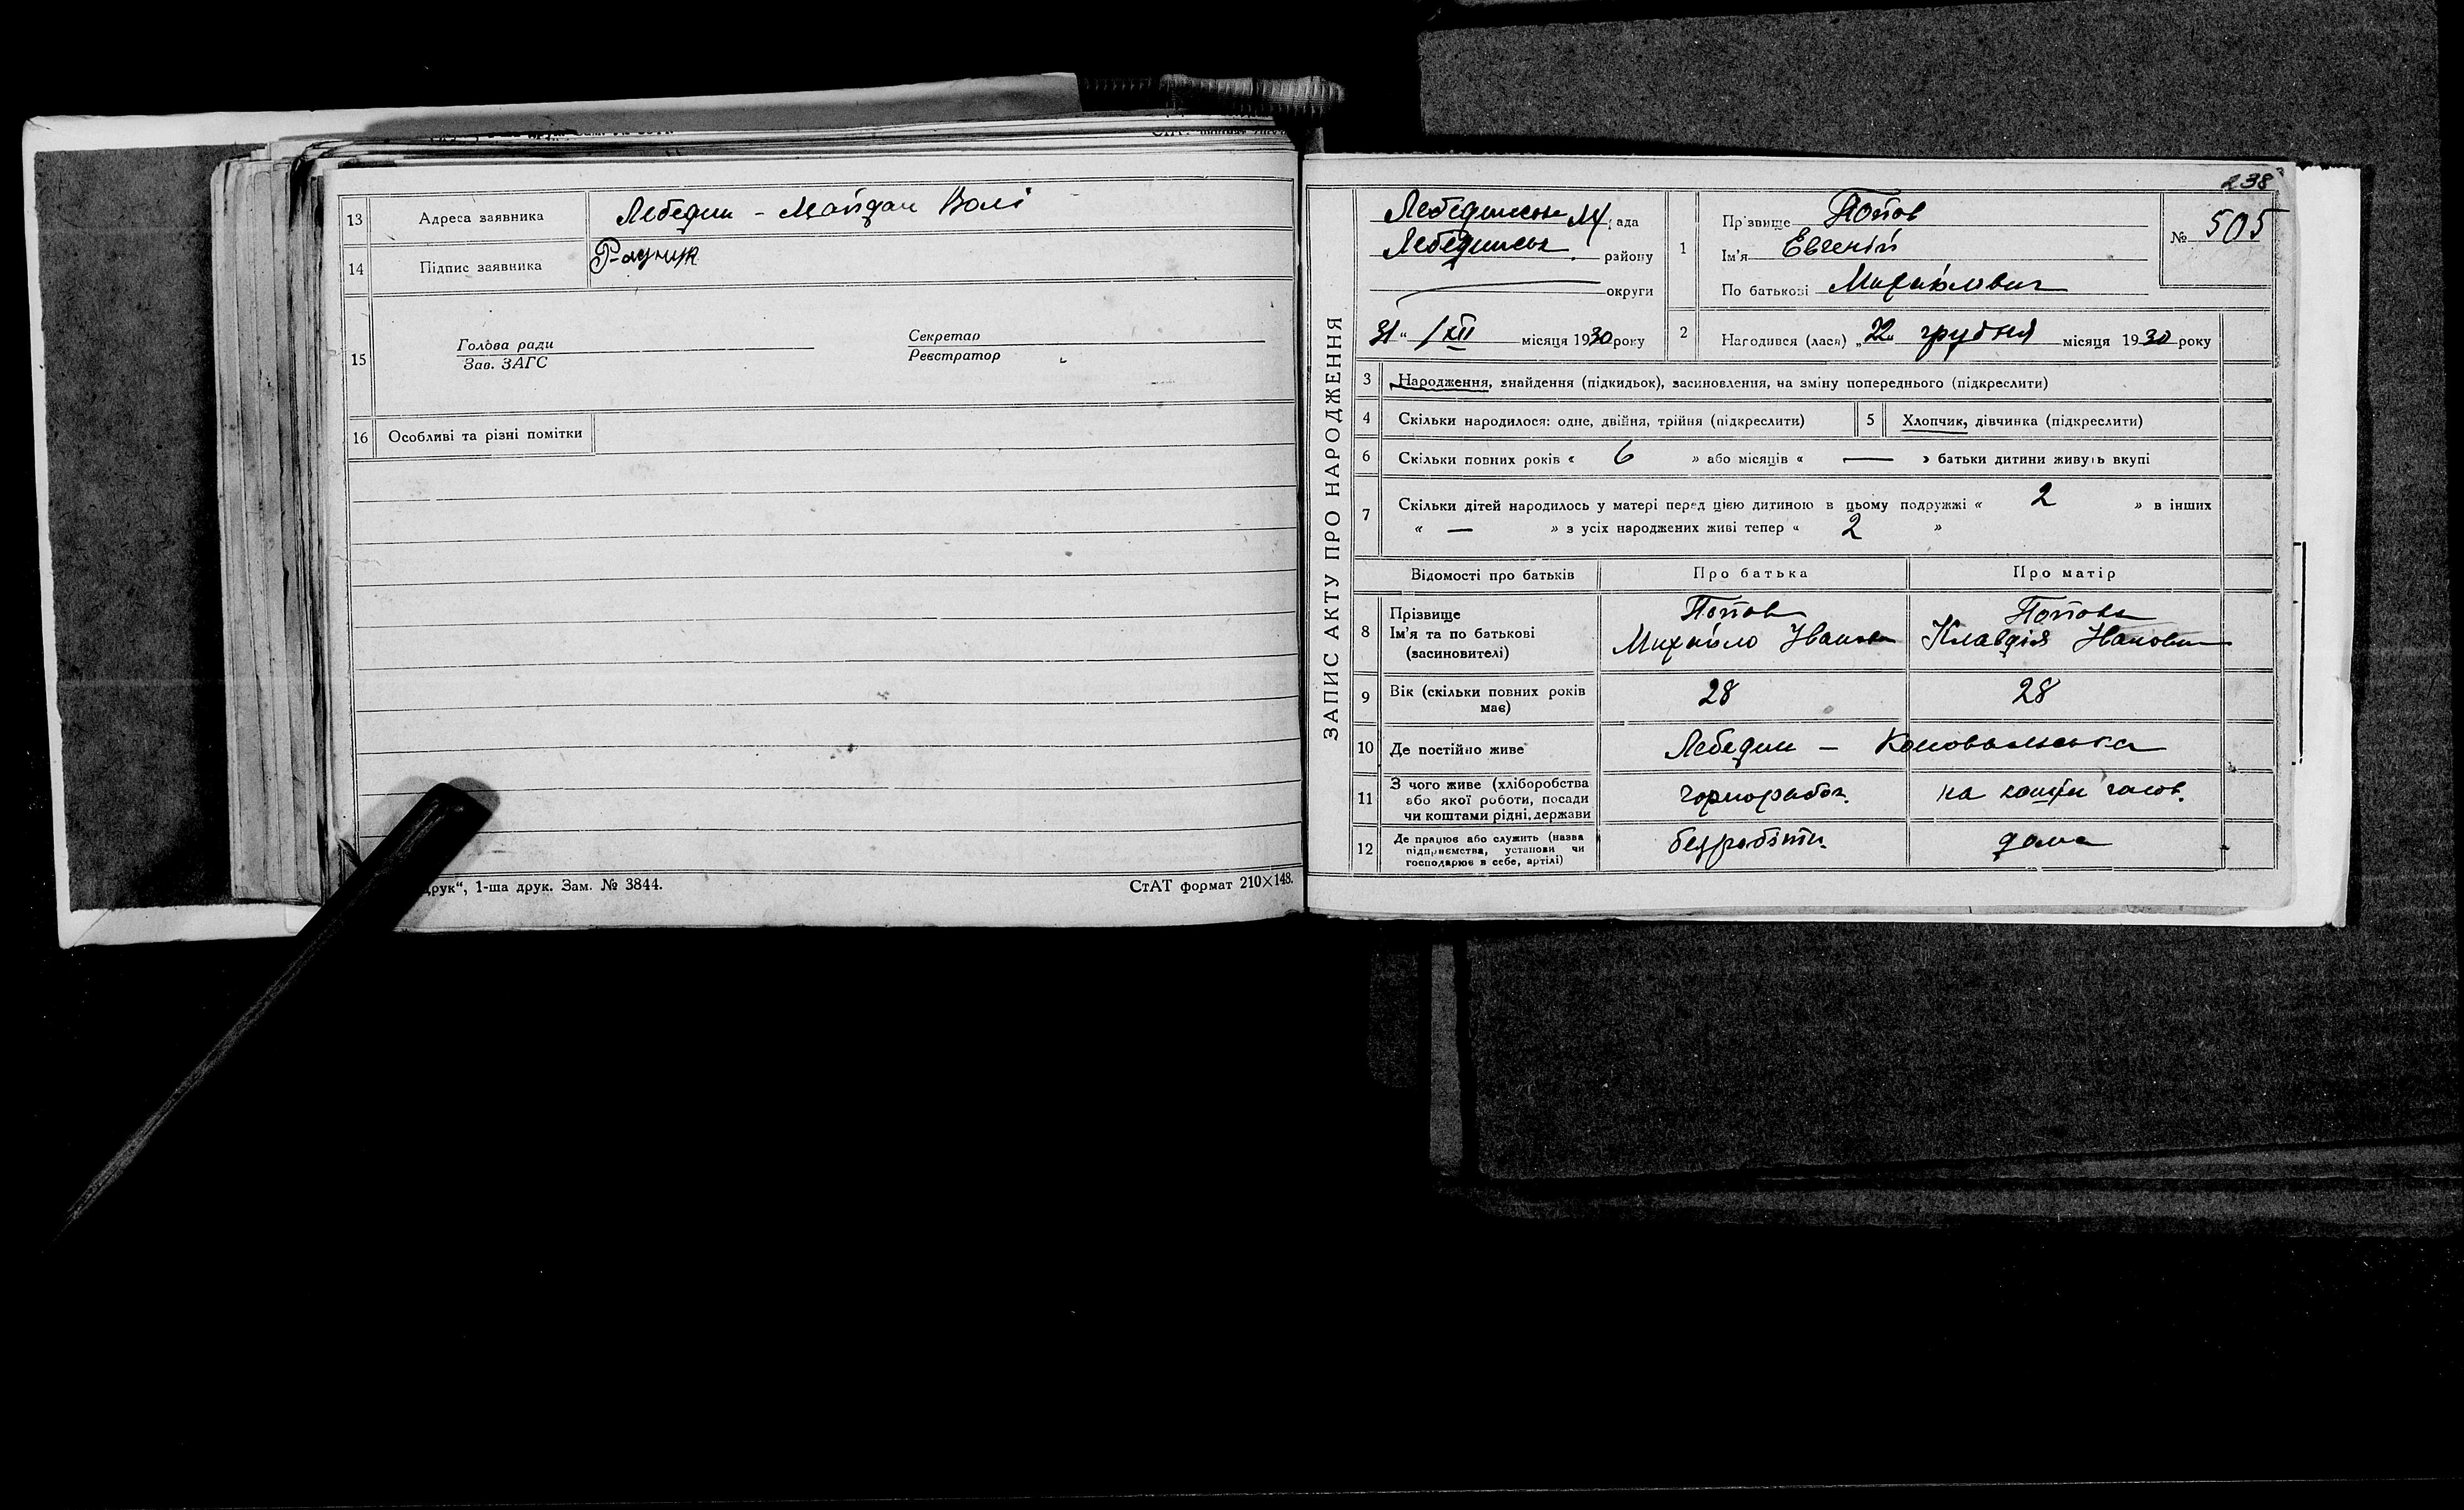 13 Адреса заявника Лебедин - Майдан Волі
14 Підпис заявника
15 Голова ради Секретар
Зав. ЗАГС Реєстратор
16 Особливі та різні помітки
друк“, 1-ша друк. Зам. № 3844. СтАТ формат 210×148.
238
ЗАПИС АКТУ ПРО НАРОДЖЕННЯ
Лебединськ М рада
Лебединськ району
округи
31 “ XII місяця 1930 року
1 Прізвище Попов
Ім'я Евгеній
По батькові Михайлович
№ 505
2 Народився (лася) „22“ грудня місяця 1930 року
3 Народження, знайдення (підкидьок), засиновлення, на зміну попереднього (підкреслити)
4 Скільки народилося: одне, двійня, трійня (підкреслити) 5 Хлопчик, дівчинка (підкреслити)
6 Скільки повних років « 6 » або місяців « — » батьки дитини живуть вкупі
7 Скільки дітей народилось у матері перед цією дитиною в цьому подружжі « 2 » в інших
« — » з усіх народжених живі тепер « 2 »
Відомості про батьків Про батька Про матір
8 Прізвище Попов Попова
Ім'я та по батькові Михайло Іванов Клавдія Івановна
(засиновителі)
9 Вік (скільки повних років має) 28 28
10 Де постійно живе Лебедин - Коновальська
11 З чого живе (хліборобства
або якої роботи, посади чорнорабоч. на кошти чолов.
чи коштами рідні, держави
12 Де працює або служить (назва
підприємства, установи чи безробітн. дома
господарює в себе, артілі)